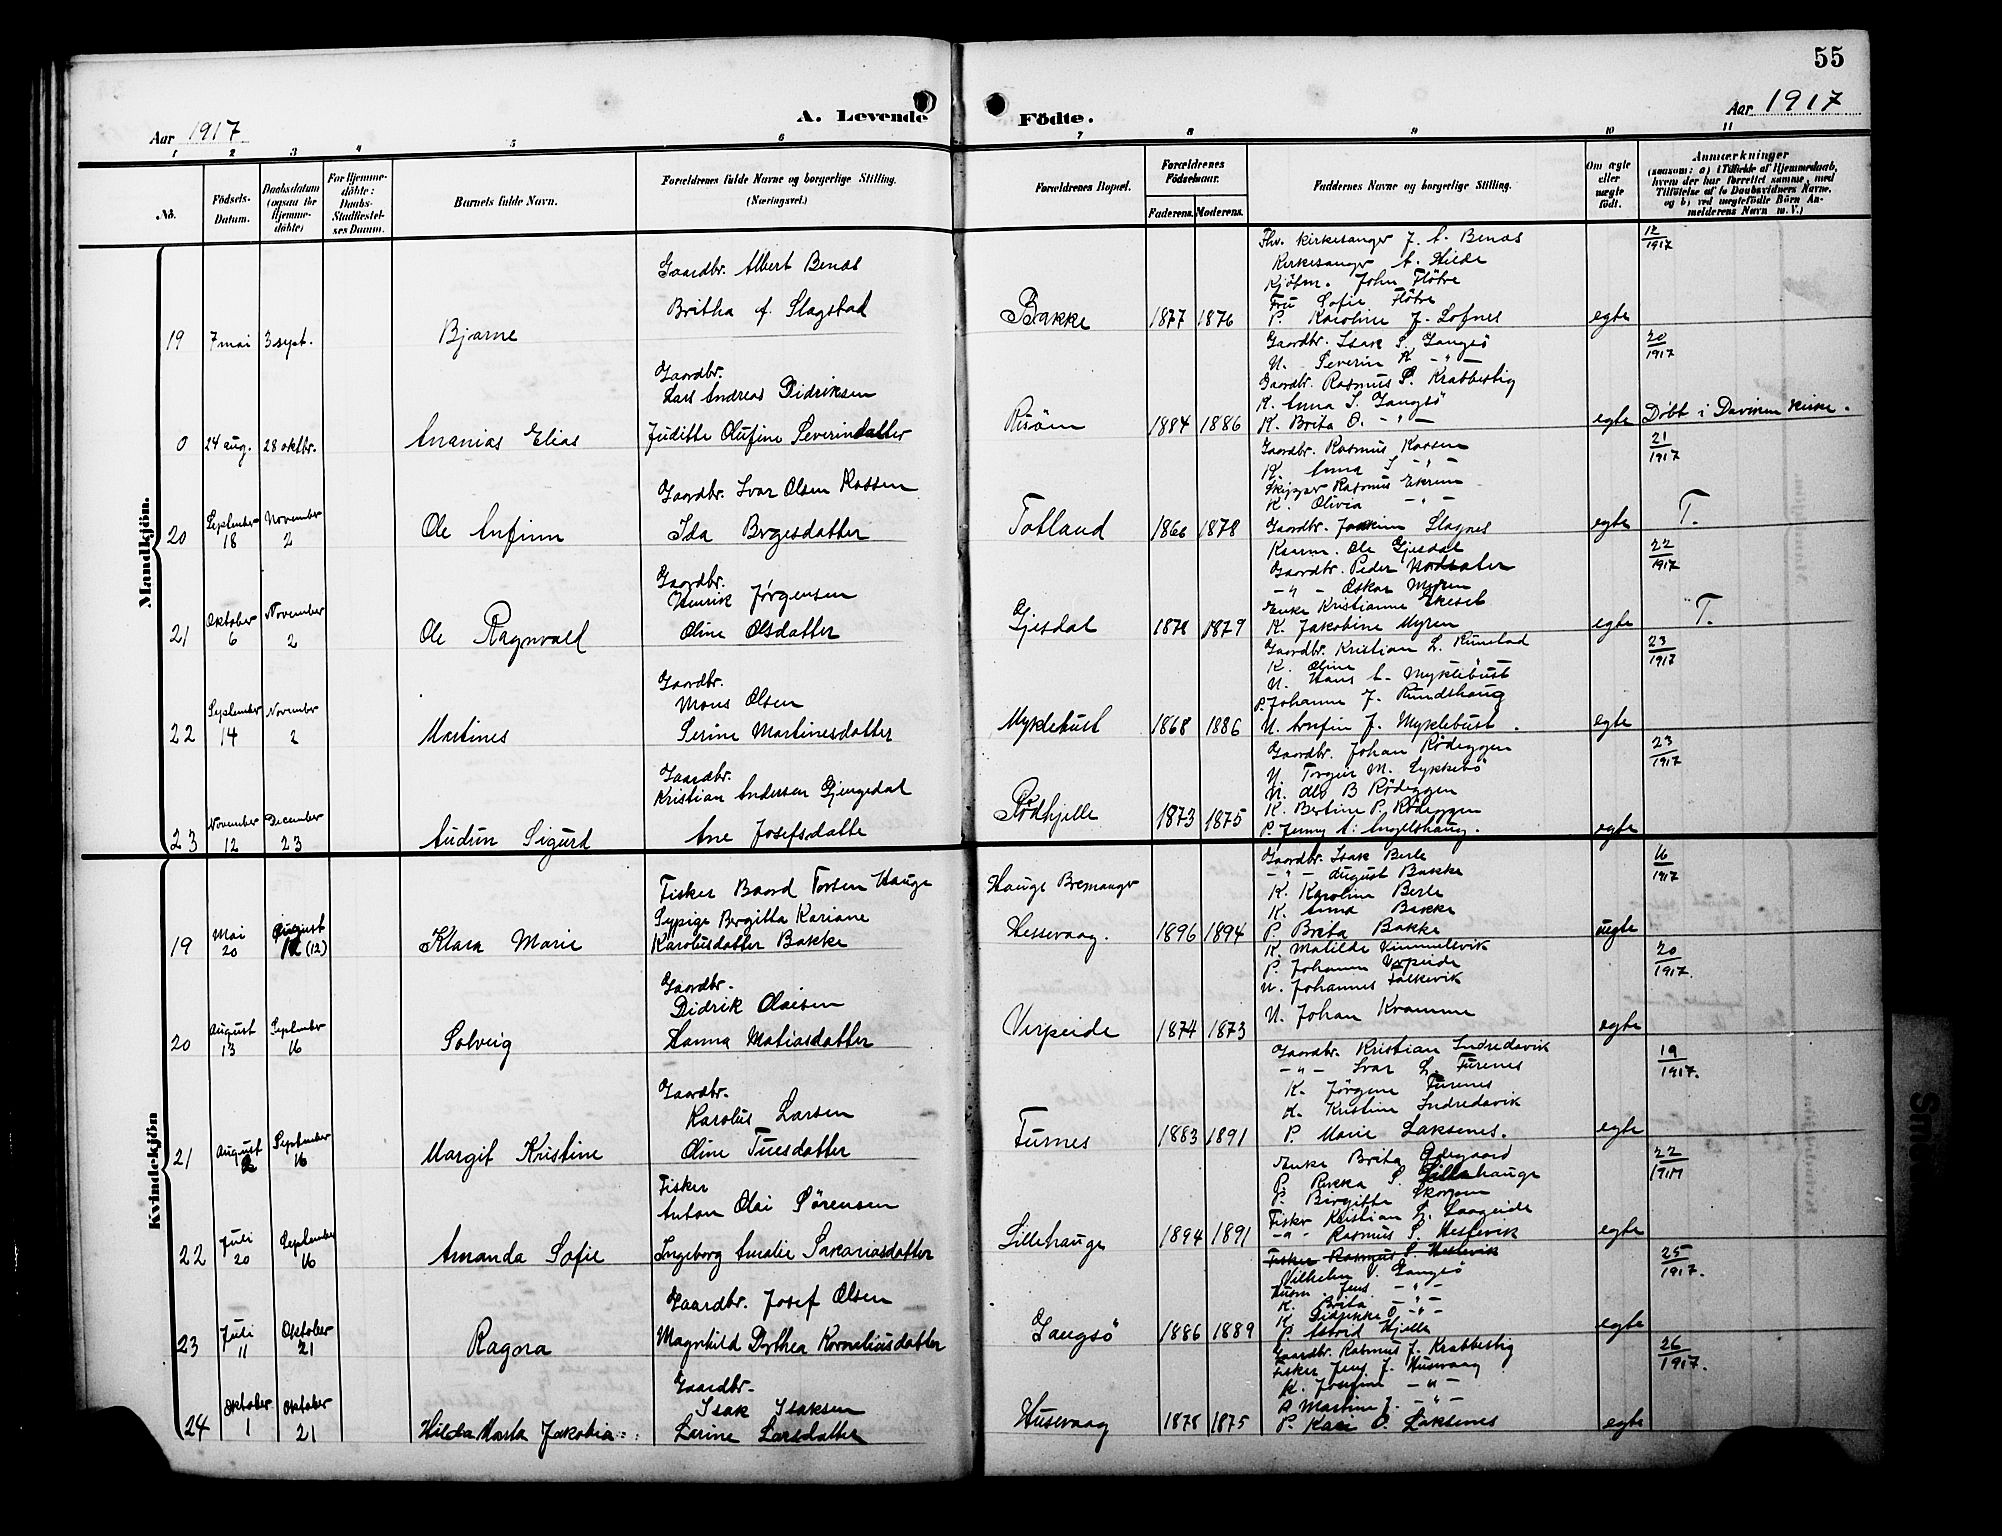 55
Aar 1917
A. Levende
Födte.
Aar 1917
1 2 3 4 5 6 7 8 9 10 11
No.
Födsels-Datum.
Daabsdatum (ogsaa for Hjemme-döbte)
For Hjemme-döbte: Daabs-Stadfæstel-ses Datum.
Barnets fulde Navn.
Forældrenes fulde Navne og borgerlige Stilling. (Næringsvei.)
Forældrenes Bopæl.
Forældrenes Födselsaar.
Faderens. Moderens.
Faddernes Navne og borgerlige Stilling.
Om ægte eller uægte födt.
Anmærkninger
(saasom: a) i Tilfælde af Hjemmedaab, hvem der har forrettet samme, med Tilföielse af to Daabsvidners Navne, og b) ved uægtefödte Börn An-melderens Navn m. V.)
Mandkjön.
19 7 mai 3 sept. Bjarne
Gaardbr. Albert Benas
Britha f. Slagstad
Bakke 1877 1876
Fhv. Kirkesanger J. A. Benas
Kirkesanger A. Hilde
Kjöbm. John Flötre
Fru Sofie Flötre
P. Karoline J. Lofnes
egte
12/1917
0 24 aug. 28 oktbr. Ananias Elias
Gaardbr.
Lars Andreas Didriksen
Juditte Olufine Severindatter
Risöen 1884 1886
Gaardbr. Isak S. Gangsö
U. Severin K - " -
Gaardbr. Rasmus P. Krabbestig
K. Anna I. Gangsö
K. Brita O. - " -
egte
20/1917
Döbt i Daviken Kirke.
20 September 18 November 2 Ole Anfinn
Gaardbr. Ivar Olsen Rossen
Ida Bgesdatter
Totland 1866 1878
Gaardbr. Rasmus Rossen
K. Anna S - " -
Skipper Rasmus Ekrem
K. Olivia - " -
Gaardbr. Joakim Slagnes
egte
21/1917
T.
21 Oktober 6 November 2 Ole Ragnvald
Gaardbr.
Henrik Jørgensen
Oline Olsdatter
Gjesdal 1878 1879
Ole Gjesdal
Gaardbr. Peder
- " - Oskar Myren
Enke Kristianne Ekeset
K. Jakobine Myren
egte
22/1917
T.
22 September 14 November 2 Martines
Gaardbr.
Mons Olsen
Serine Martinesdatter
Myklebust 1868 1886
Gaardbr. Kristian L. Rimstad
K. Oline
U. Hans A. Myklebust
P. Johanne J. Rundshaug
U. Anfin J. Myklebust.
egte
23/1917
23 November 12 December 23 Audun Sigurd
Gaardbr.
Kristian Andersen Gjengedal
Ane Josefsdatte
Rödhjelle 1873 1875
Gaardbr. Johan Rödeggen
U. Torgeir M. Lykkebö
U. B Rödeggen
K. Bertine P. Rödeggen
P. Jenny A. Ingelshaug.
egte
23/1917
Kvindekjön
19 Mai 20 August 12 (12) Klara Marie
Fisker Baard Torsen Hauge
Sypige Bergitta Kariane
Karolusdatter Bakke
Hauge Bremanger
Hessevaag. 1896 1894
Gaardbr. Isak Berle
- " - August Bakke
K. Karoline Berle
K. Anna Bakke
P Brita Bakke
uegte
16/1917
20 August 13 September 16 Solveig
Gaardbr.
Didrik Olaisen
Hanna Matiasdatter
Verpeide 1874 1873
K. Matilde Vemmelsvik
P. Johanne Verpeide
U. Johannes Falkevik
U. Johan Kvamme
egte
20/1917.
21 August September 16 Margit Kristine
Gaardbr.
Karolus Larsen
Oline Tuesdatter
Furnes 1883 1891
Gaardbr. Kristian Indredavik
- " - Ivar L. Furenes
K. Jörgine Furenes
K. Kristine Indredavik
P. Marie Laksenes.
egte
19/1917.
22 Juli 20 September 16 Amanda Sofie
Fisker
Anton Olai Sörensen
Ingeborg Amalie Sakariasdatter
Lillehauge 1894 1891
Enke Brita Ödegaard
P. Rikka S. Lillehauge
P. Birgitte Skorpen
Fisker Kristian L. Laageide
- " - Rasmus S. Hessevik
egte
22/1917
23 Juli 11 Oktober 21 Ragna
Gaardbr. Josef Olsen
Magnhild Dorthea Korneliusdatter
Gangsö 1886 1889
Fisker Rasmus S. Hessevik
Vilhelm V. Gangsö
Husm. Jens - " -
K. Brita - " -
K. Didrikke O - " -
P. Astrid Hjelle
egte
25/1917.
24 Oktober 1 Oktober 21 Hilda Marta Jakobia
Gaardbr.
Isak Isaksen
Lerine Larsdatter
Husevaag 1878 1875
Gaardbr. Rasmus J. Krabbestig
Fisker Jens J. Husevaag
K. Josefine - " -
P Martine J. - " -
P. Kari O. Laksenes
egte
26/1917.